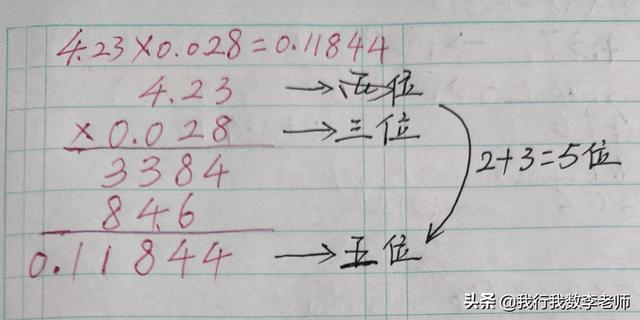 4.23×0.028=0.11844
4.23 → 两位
×0.028 → 三位
2+3=5位
3384
846
0.11844 → 五位
头条 @我行我数李老师